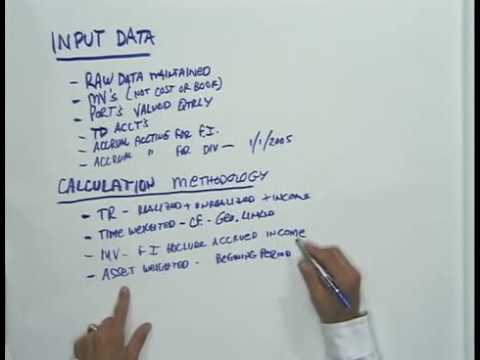 INPUT DATA
- RAW DATA MAINTAINED
- MV'S (NOT COST OR BOOK)
- PORT'S VALUED QTRLY
- TD ACCT'S
- ACCRUAL ACCTING FOR F.I.
- ACCRUAL " FOR DIV — 1/1/2005
CALCULATION METHODOLOGY
- TR - REALIZED + UNREALIZED + INCOME
- TIME WEIGHTED - CF - GEO. LINKED
- MV - F.I INCLUDE ACCRUED INCOME
- ASSET WEIGHTED - BEGINING PERIOD